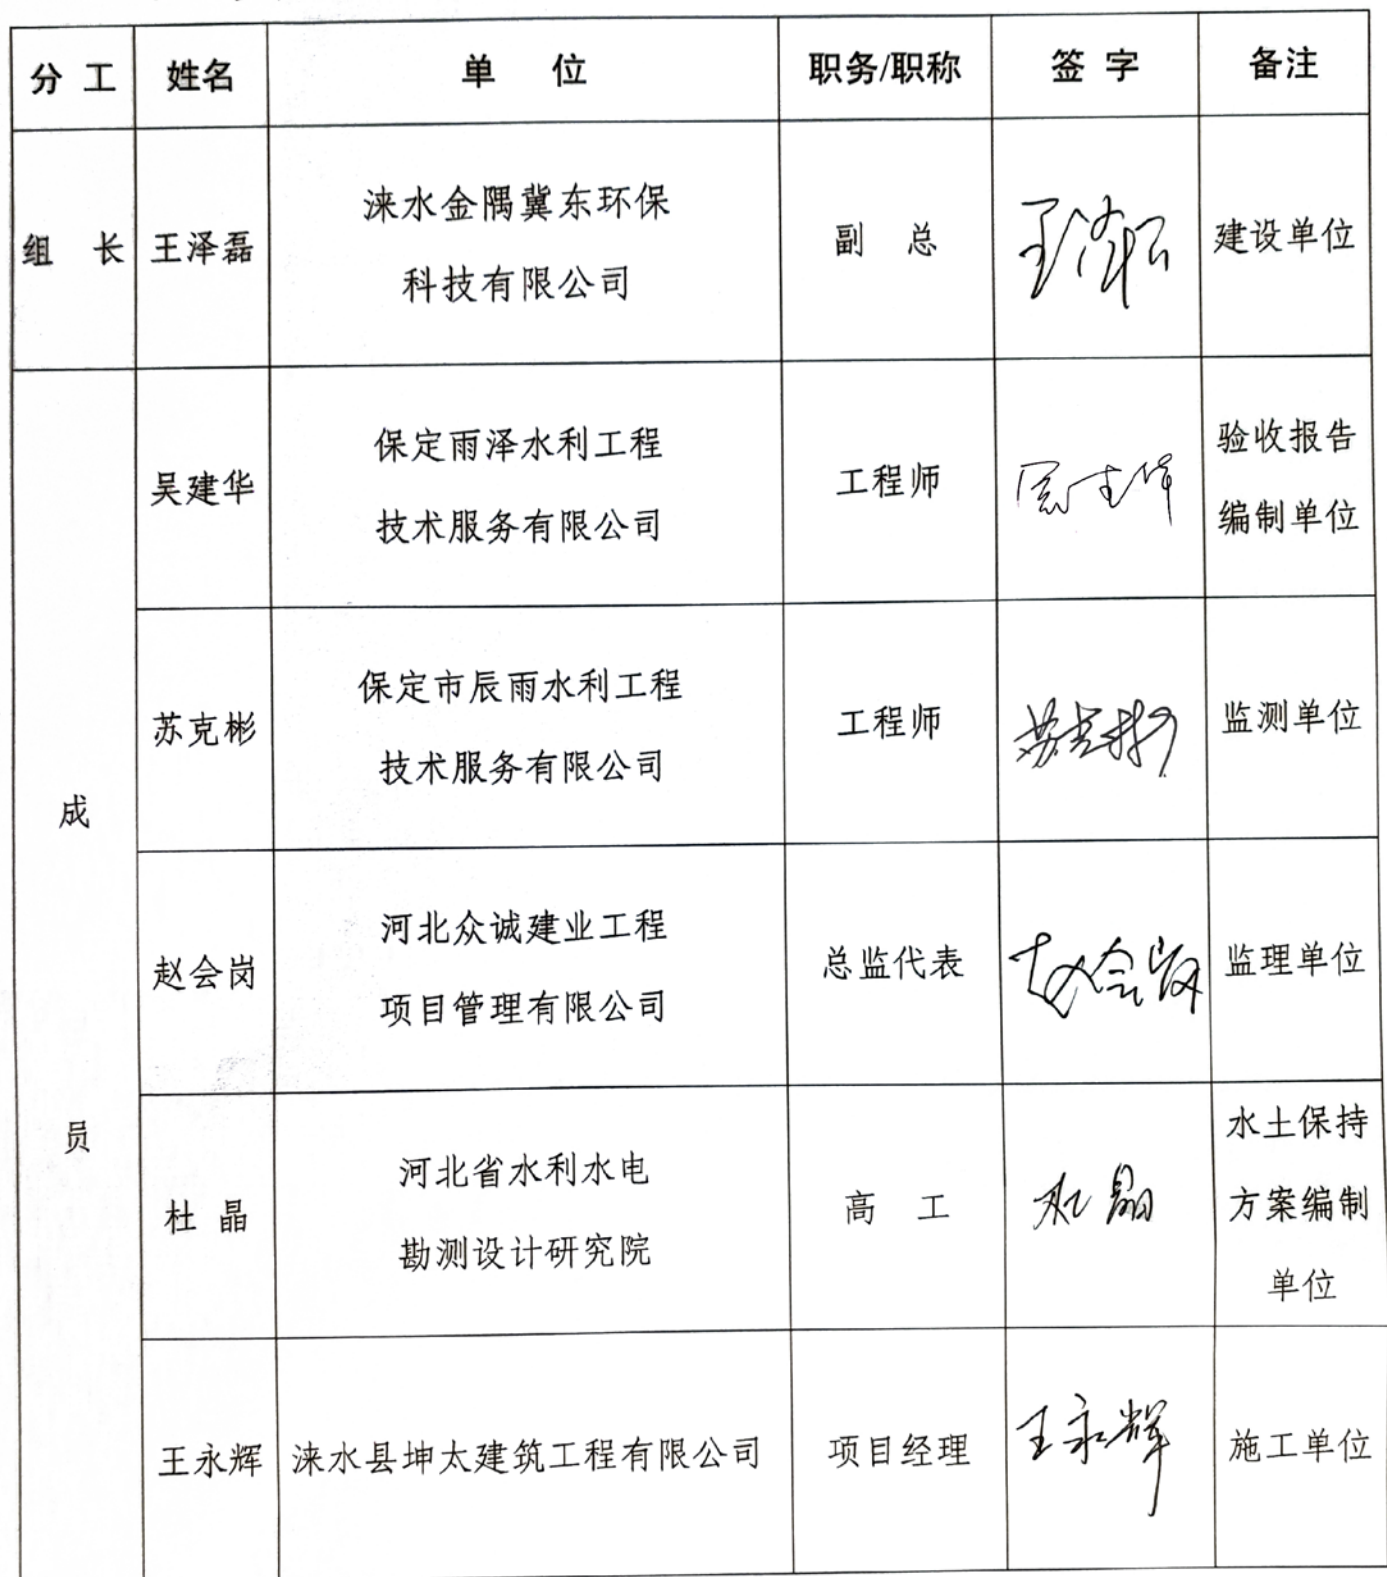 分 工 姓名 单 位 职务/职称 签 字 备注
组 长 王泽磊 涞水金隅冀东环保
科技有限公司 副 总 王泽磊 建设单位
成
员
吴建华 保定雨泽水利工程
技术服务有限公司 工程师 验收报告
编制单位
苏克彬 保定市辰雨水利工程
技术服务有限公司 工程师 苏克彬 监测单位
赵会岗 河北众诚建业工程
项目管理有限公司 总监代表 赵会岗 监理单位
杜 晶 河北省水利水电
勘测设计研究院 高 工 杜晶 水土保持
方案编制
单位
王永辉 涞水县坤太建筑工程有限公司 项目经理 王永辉 施工单位